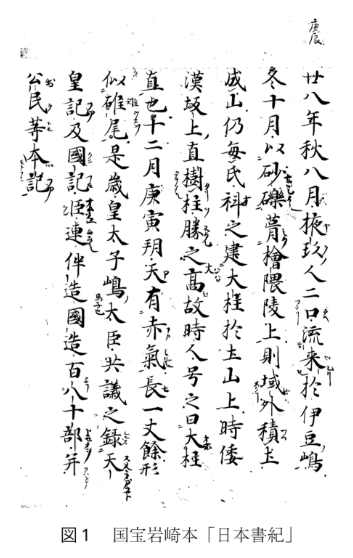 庚辰
廿八年秋八月掖玖人二口流来於伊豆嶋
冬十月以砂礫葺檜隈陵上則域外積土
成山仍毎氏科之建大柱於土山上時倭
漢坂上直樹柱勝之大高故時人号之曰大柱
直也十二月庚寅朔天有赤氣長一丈餘形
似雉尾是歳皇太子嶋大臣共議之録天
皇記及國記臣連伴造國造百八十部并
公民等本記
図1 国宝岩崎本「日本書紀」